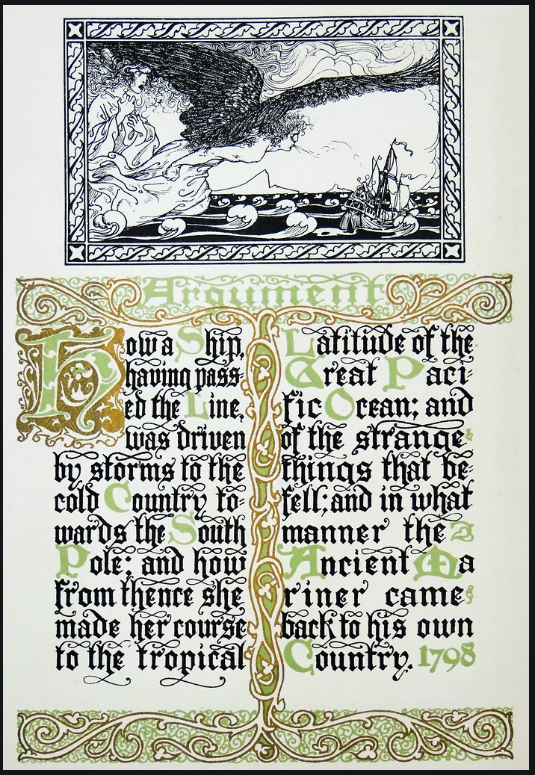 Argument
How a Ship,
having pass-
ed the Line,
was driven
by storms to the
cold Country to-
wards the South
Pole; and how
from thence she
made her course
to the tropical
Latitude of the
Great Paci-
fic Ocean; and
of the strange
things that be-
fell; and in what
manner the
Ancient Ma
riner came
back to his own
Country. 1798